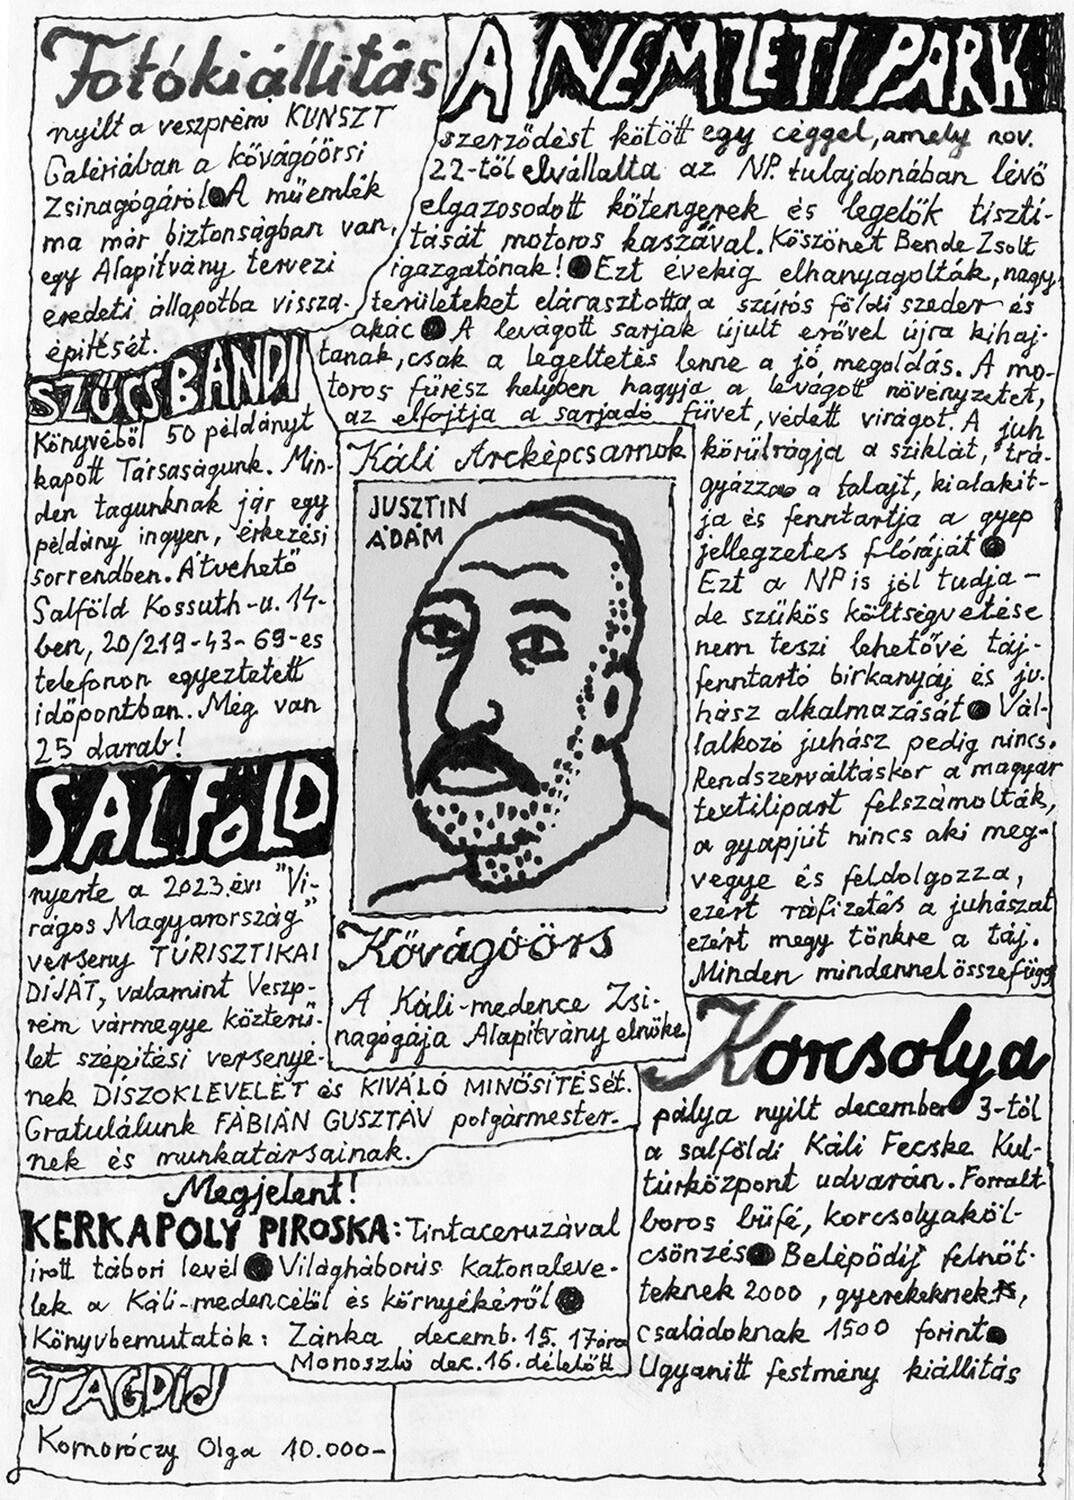 Fotókiállitás
nyilt a veszprémi KUNSZT
Galériában a kővágóörsi
Zsinagógáról ● A műemlék
ma már biztonságban van,
egy Alapitvány tervezi
eredeti állapotba vissza-
épitését.
SZŰCS BANDI
Könyvéből 50 példányt
kapott Társaságunk. Min-
den tagunknak jár egy
példány ingyen, érkezési
sorrendben. Átvehető
Salföld Kossuth-u. 14-
ben, 20/219-43-69-es
telefonon egyeztetett
időpontban. Még van
25 darab!
SALFÖLD
nyerte a 2023.évi "Vi-
rágos Magyarország"
verseny TURISZTIKAI
DÍJÁT, valamint Veszp-
rém vármegye közterü-
let szépitési versenyé-
nek DÍSZOKLEVELÉT és KIVÁLÓ MINŐSÍTÉSét.
Gratulálunk FÁBIÁN GUSZTÁV polgármester-
nek és munkatársainak.
Megjelent!
KERKAPOLY PIROSKA: Tintaceruzával
irott tábori levél ● Világháborús katonaleve-
lek a Káli-medencéből és környékéről ●
Könyvbemutatók: Zánka decemb. 15. 17óra
Monoszló dec. 16. délelőtt
TAGDÍJ
Komoróczy Olga 10.000-
A NEMZETI PARK
szerződést kötött egy céggel, amely nov.
22-től elvállalta az NP. tulajdonában lévő
elgazosodott kötengerek és legelők tiszti-
tását motoros kaszával. Köszönet Bende Zsolt
igazgatónak! ● Ezt évekig elhanyagolták, nagy
területeket elárasztotta a szúrós földi szeder és
akác ● A levágott sarjak újult erővel újra kihaj-
tanak, csak a legeltetés lenne a jó megoldás. A mo-
toros fűrész helyben hagyja a levágott növényzetet,
az elfojtja a sarjadó füvet, védett virágot. A juh
körülrágja a sziklát, trá-
gyázza a talajt, kialakit-
ja és fenntartja a gyep
jellegzetes flóráját ●
Ezt a NP is jól tudja -
de szűkös költségvetése
nem teszi lehetővé táj-
fenntartó birkanyáj és ju-
hász alkalmazását ● Vál-
lalkozó juhász pedig nincs.
Rendszerváltáskor a magyar
textilipart felszámolták,
a gyapjút nincs aki meg-
vegye és feldolgozza,
ezért ráfizetés a juhászat
ezért megy tönkre a táj.
Minden mindennel összefügg
Káli Arcképcsarnok
JUSZTIN
ÁDÁM
Kővágóörs
A Káli-medence Zsi-
nagógája Alapitvány elnöke
Korcsolya
pálya nyilt december 3-tól
a salföldi Káli Fecske Kul-
túrközpont udvarán. Forralt
boros büfé, korcsolyaköl-
csönzés ● Belépődij felnőt-
teknek 2000, gyerekeknek,
családoknak 1500 forint ●
Ugyanitt festmény kiállitás